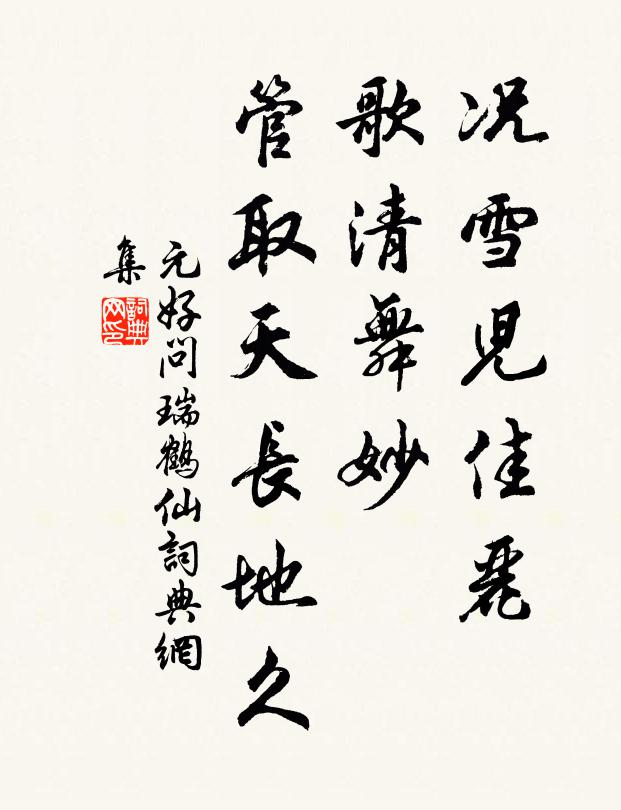 况雪児佳麗
歌清舞妙
管取天長地久
元好问瑞鶴仙詞典網
集
詞典
网印